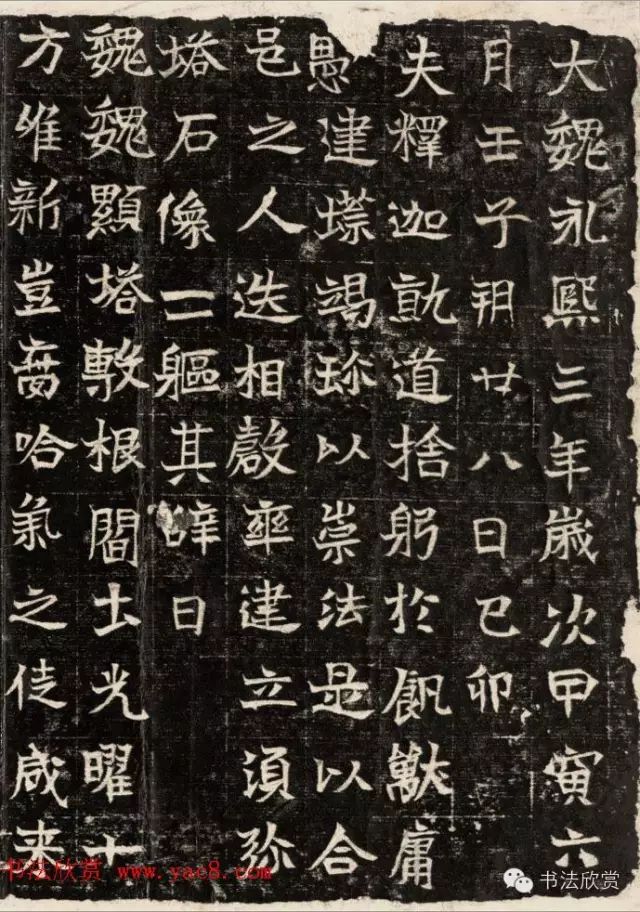 大魏永熙三年歲次甲寅六
月壬子朔廿八日己卯
夫釋迦就道捨躬於飢獸庸
愚建墖竭珎以崇法是以合
邑之人迭相磬率建立湏弥
塔石像一軀其辞曰
魏魏顯塔敷根閻土光曜十
方維新豈啻哈氣之徒咸来
书法欣赏 www.yac8.com
书法欣赏